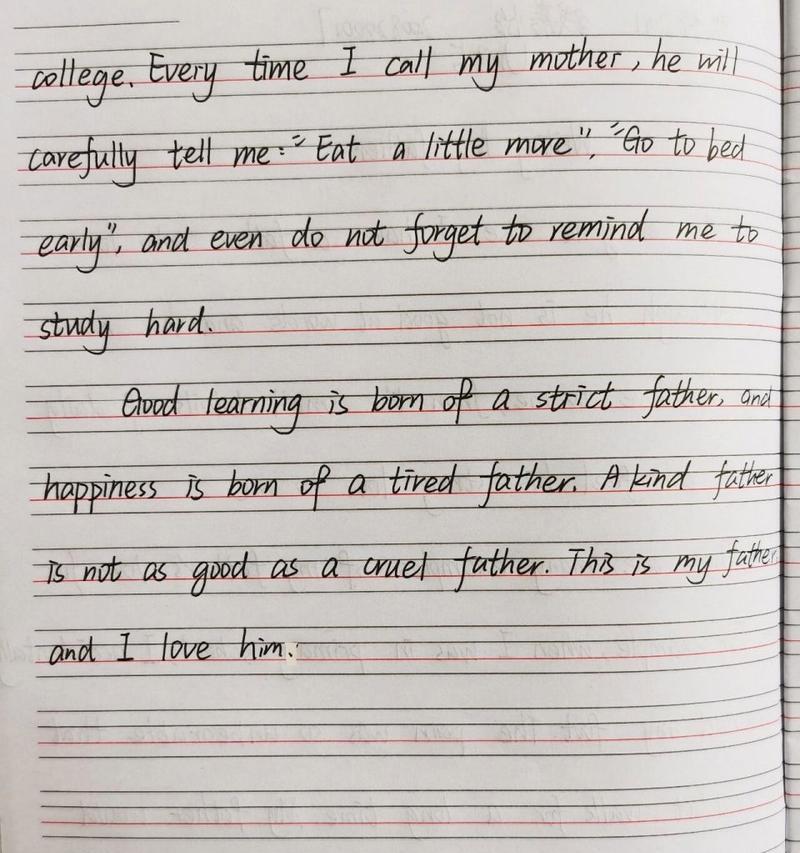 college. Every time I call my mother, he will
carefully tell me: "Eat a little more", "Go to bed
early", and even do not forget to remind me to
study hard.
Good learning is born of a strict father, and
happiness is born of a tired father. A kind father
is not as good as a cruel father. This is my father
and I love him.